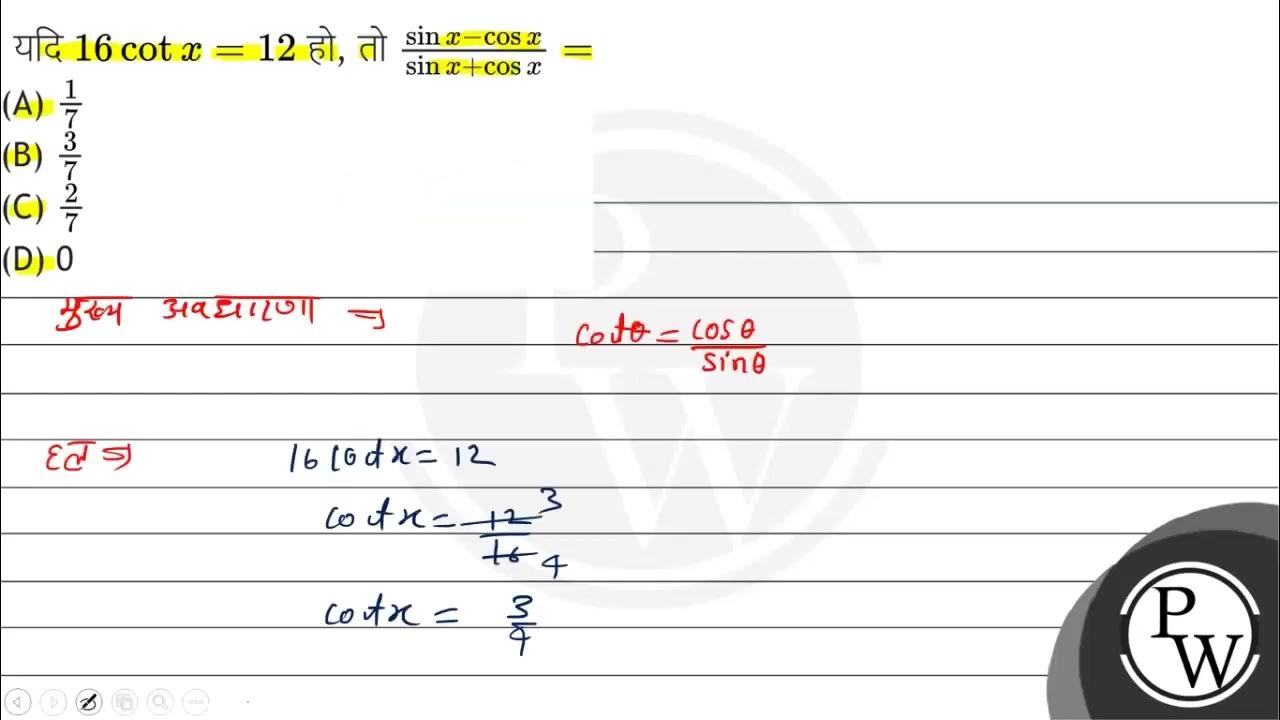 यदि 16 cot x = 12 हो, तो \frac{\sin x - \cos x}{\sin x + \cos x} =
(A) \frac{1}{7}
(B) \frac{3}{7}
(C) \frac{2}{7}
(D) 0
मुख्य अवधारणा ⇒
cotθ = \frac{cosθ}{sinθ}
हल ⇒
16 cot x = 12
cot x = \frac{12}{16} \frac{3}{4}
cot x = \frac{3}{4}
P
W
P
W